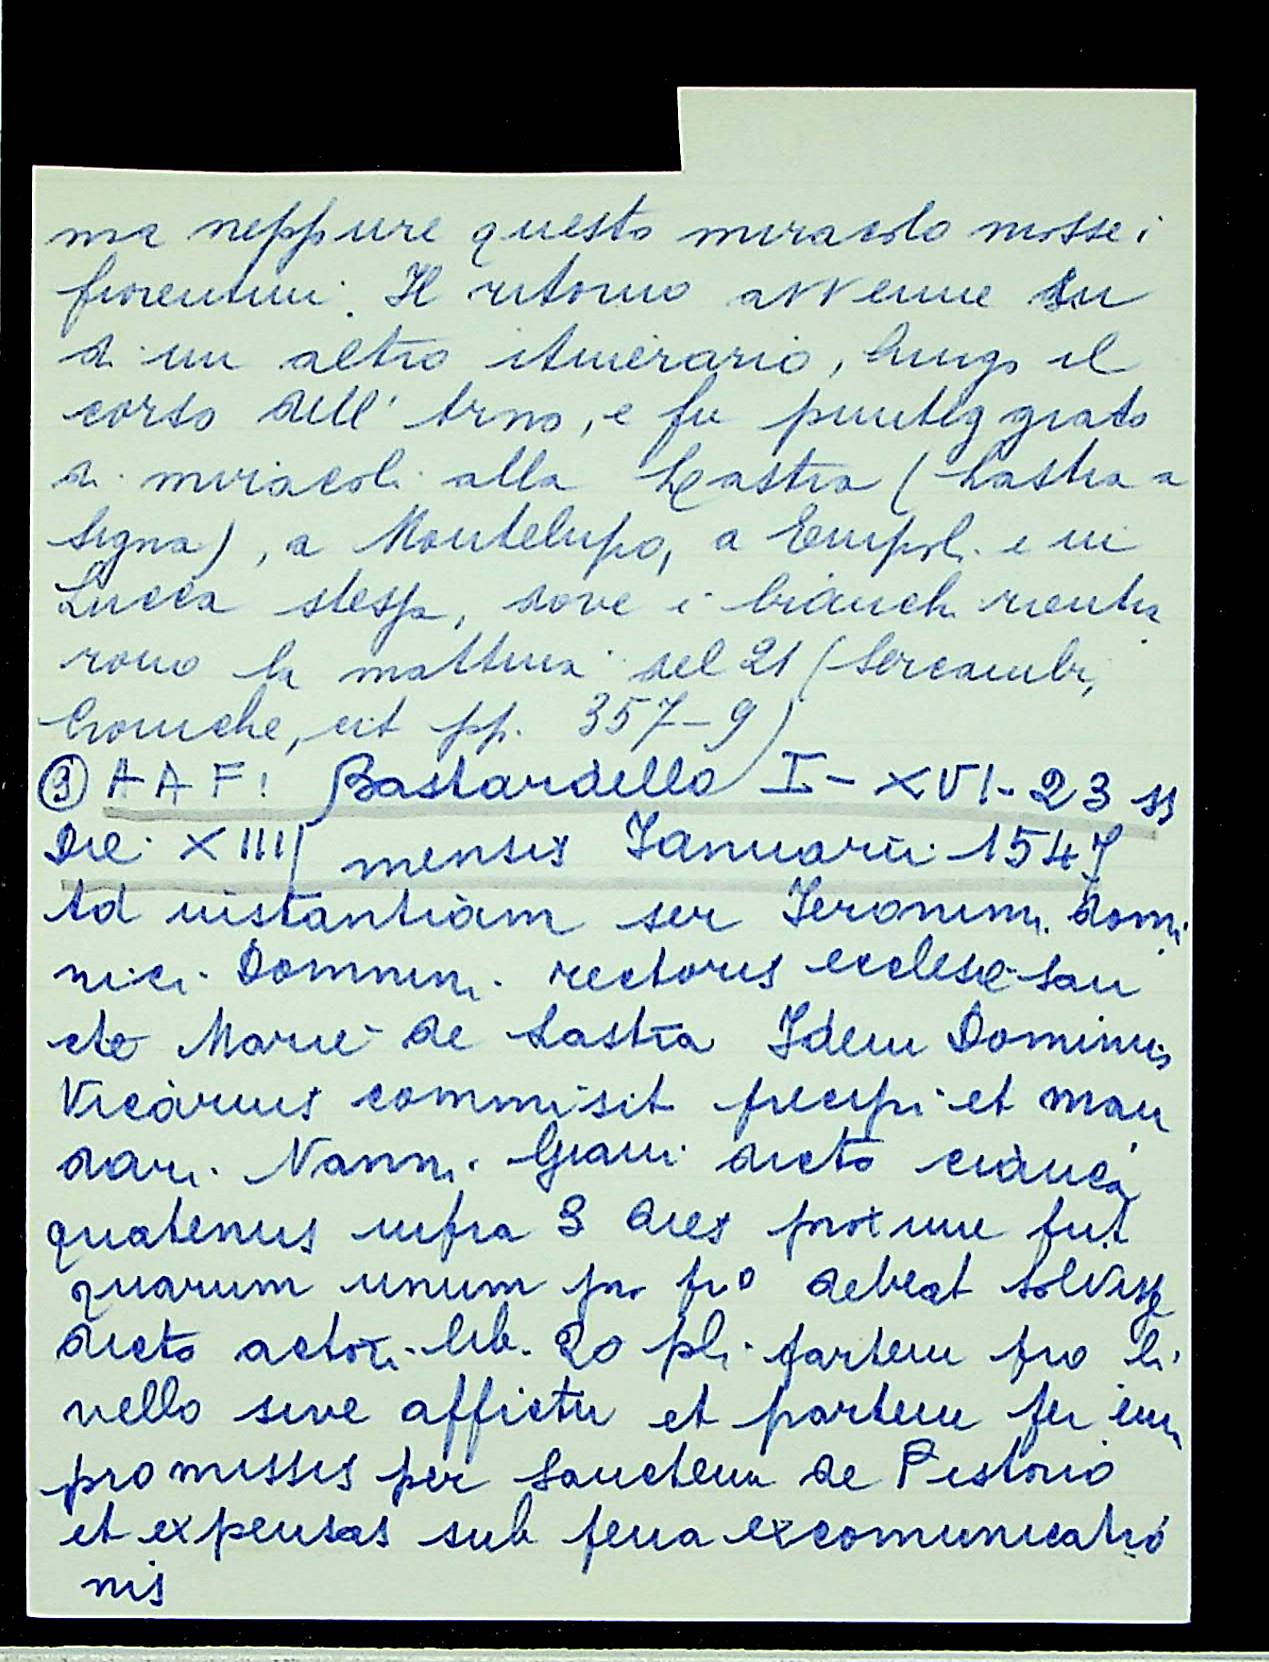 ma neppure questo miracolo mosse i
fiorentini. Il ritorno avvenne su
di un altro itinerario, lungo il
corso dell'Arno, e fu punteggiato
di miracoli alla Lastra (Lastra a
Signa), a Montelupo, a Empoli e in
Lucca stessa, dove i bianchi rientra
rono la mattina del 21 (Sercambi,
Croniche, cit pp. 357-9)
③ AAF: Bastardello I-XVI-23 ss
Die XIIII mensis Ianuarii 1547
Ad instantiam ser Ieronimi domi
nici Domnini rectoris ecclesie san
cte Marie de Lastra Idem Dominus
Vicarius commisit precipi et man
dari Nanni Giani dicto cianca
quatenus infra 3 dies proxime fut
quarum unum pro pro debeat solvisse
dicto actori lib. 20 pli partem pro li
vello sive affictu et partem per eum
promissis per Sanctem de Pistorio
et expensas sub pena excomunicatio
nis